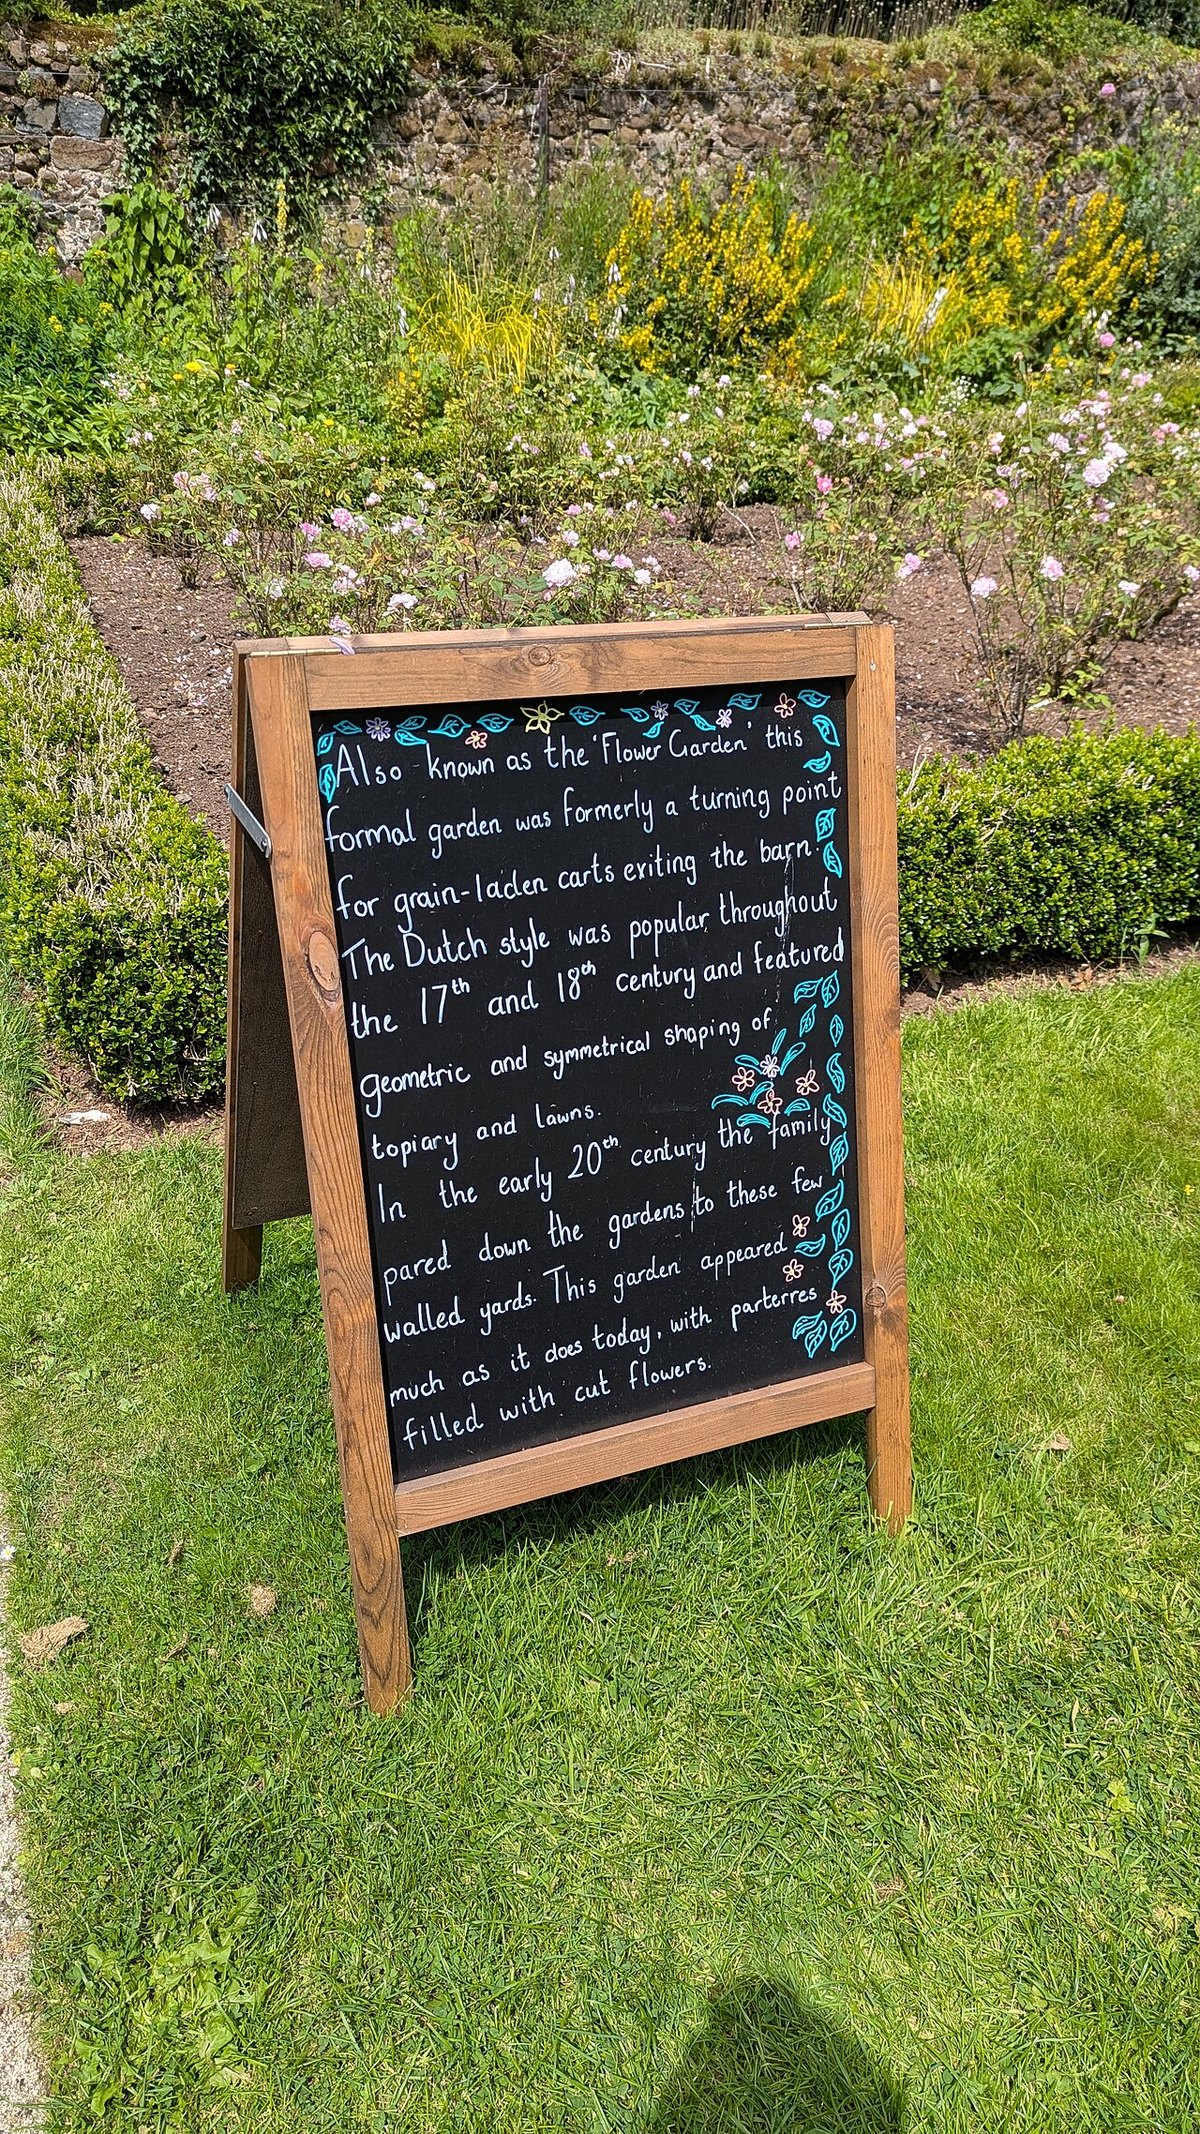 Also known as the 'Flower Garden' this
formal garden was formerly a turning point
for grain-laden carts exiting the barn.
The Dutch style was popular throughout
the 17th and 18th century and featured
geometric and symmetrical shaping of
topiary and lawns.
In the early 20th century the family
pared down the gardens to these few
walled yards. This garden appeared
much as it does today, with parterres
filled with cut flowers.